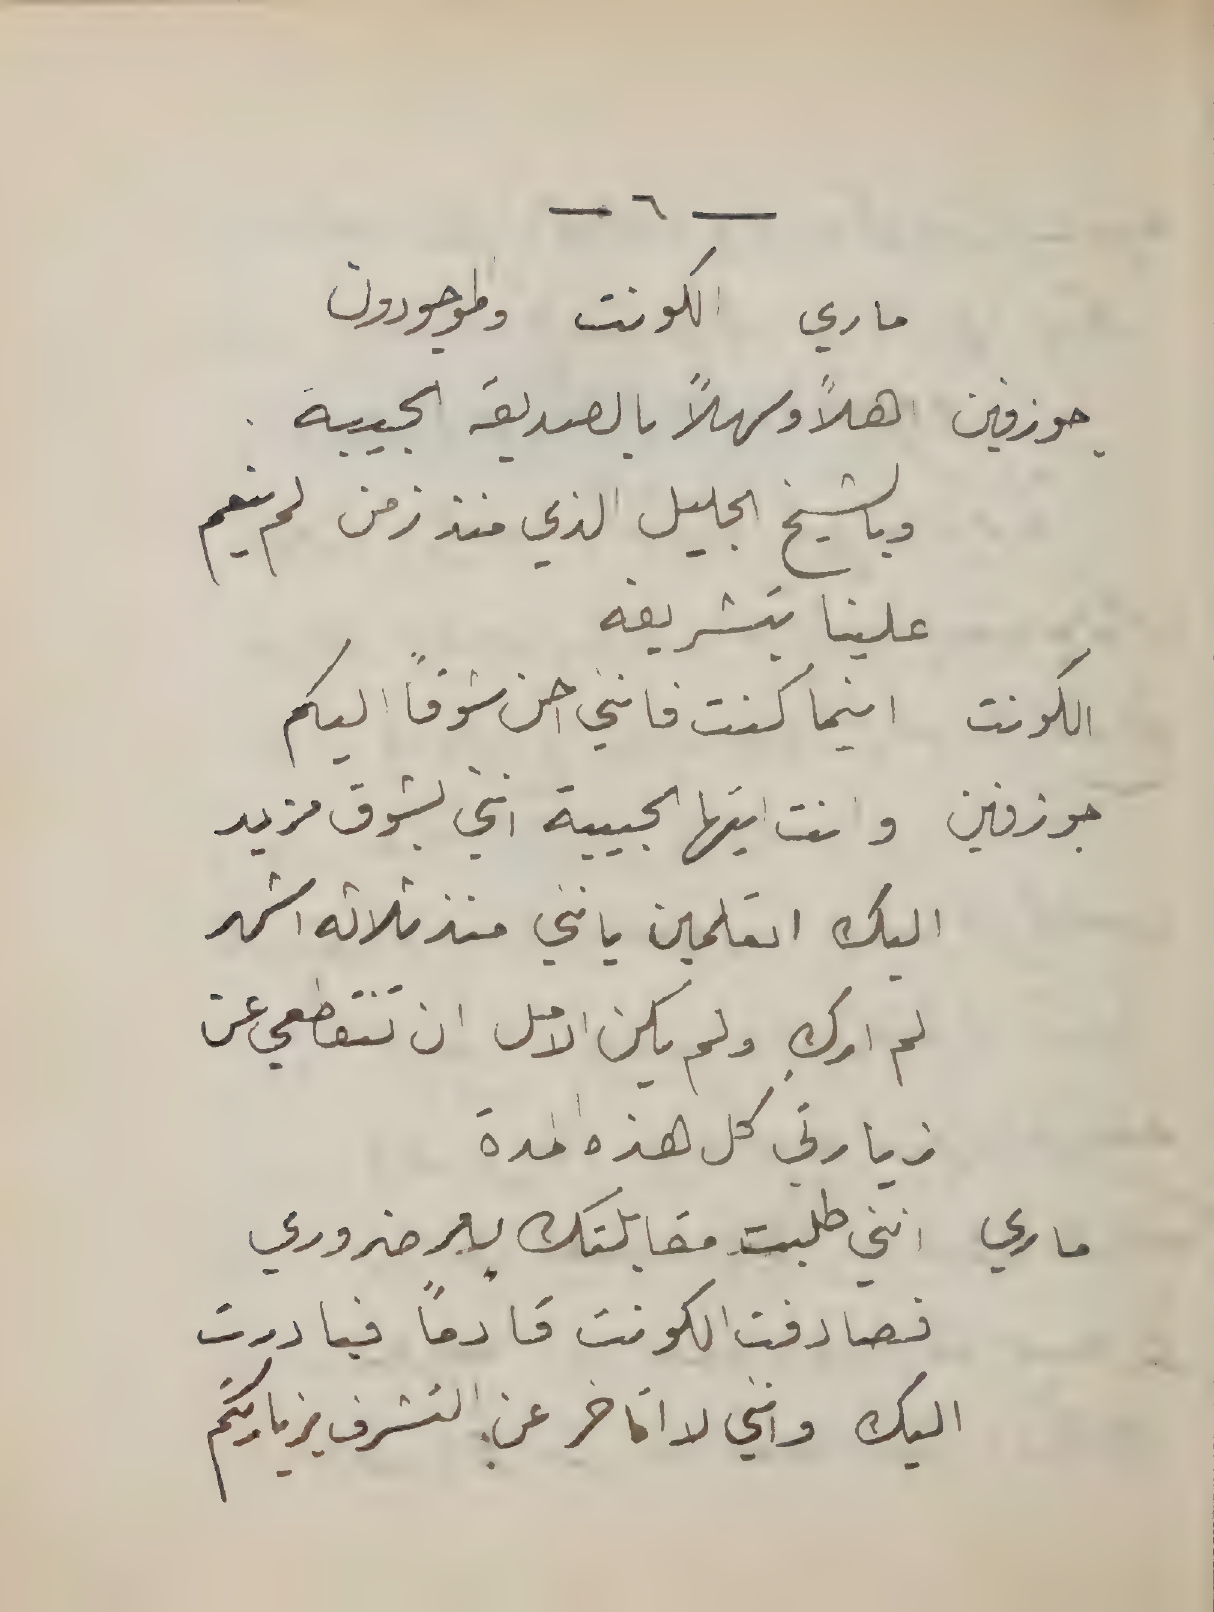 — ٦ —
ماري الكونت والموجودون
جوزفين اهلاً وسهلاً بالصديقة الحبيبة
وبالشيخ الجليل الذي منذ زمن لم ينعم
علينا بتشريفه
الكونت اينما كنت فانني احن شوقاً اليكم
جوزفين وانت ايتها الحبيبة انني بشوق مزيد
اليك اتعلمين بانني منذ ثلاثه اشهر
لم اركِ ولم يكن الامل ان تنقطعي عن
زيارتي كل هذه المدة
ماري انني طلبت مقابلتك لامر ضروري
فصادفت الكونت قادماً فبادرت
اليك وانني لا اتاخر عن التشرف بزيارتكم